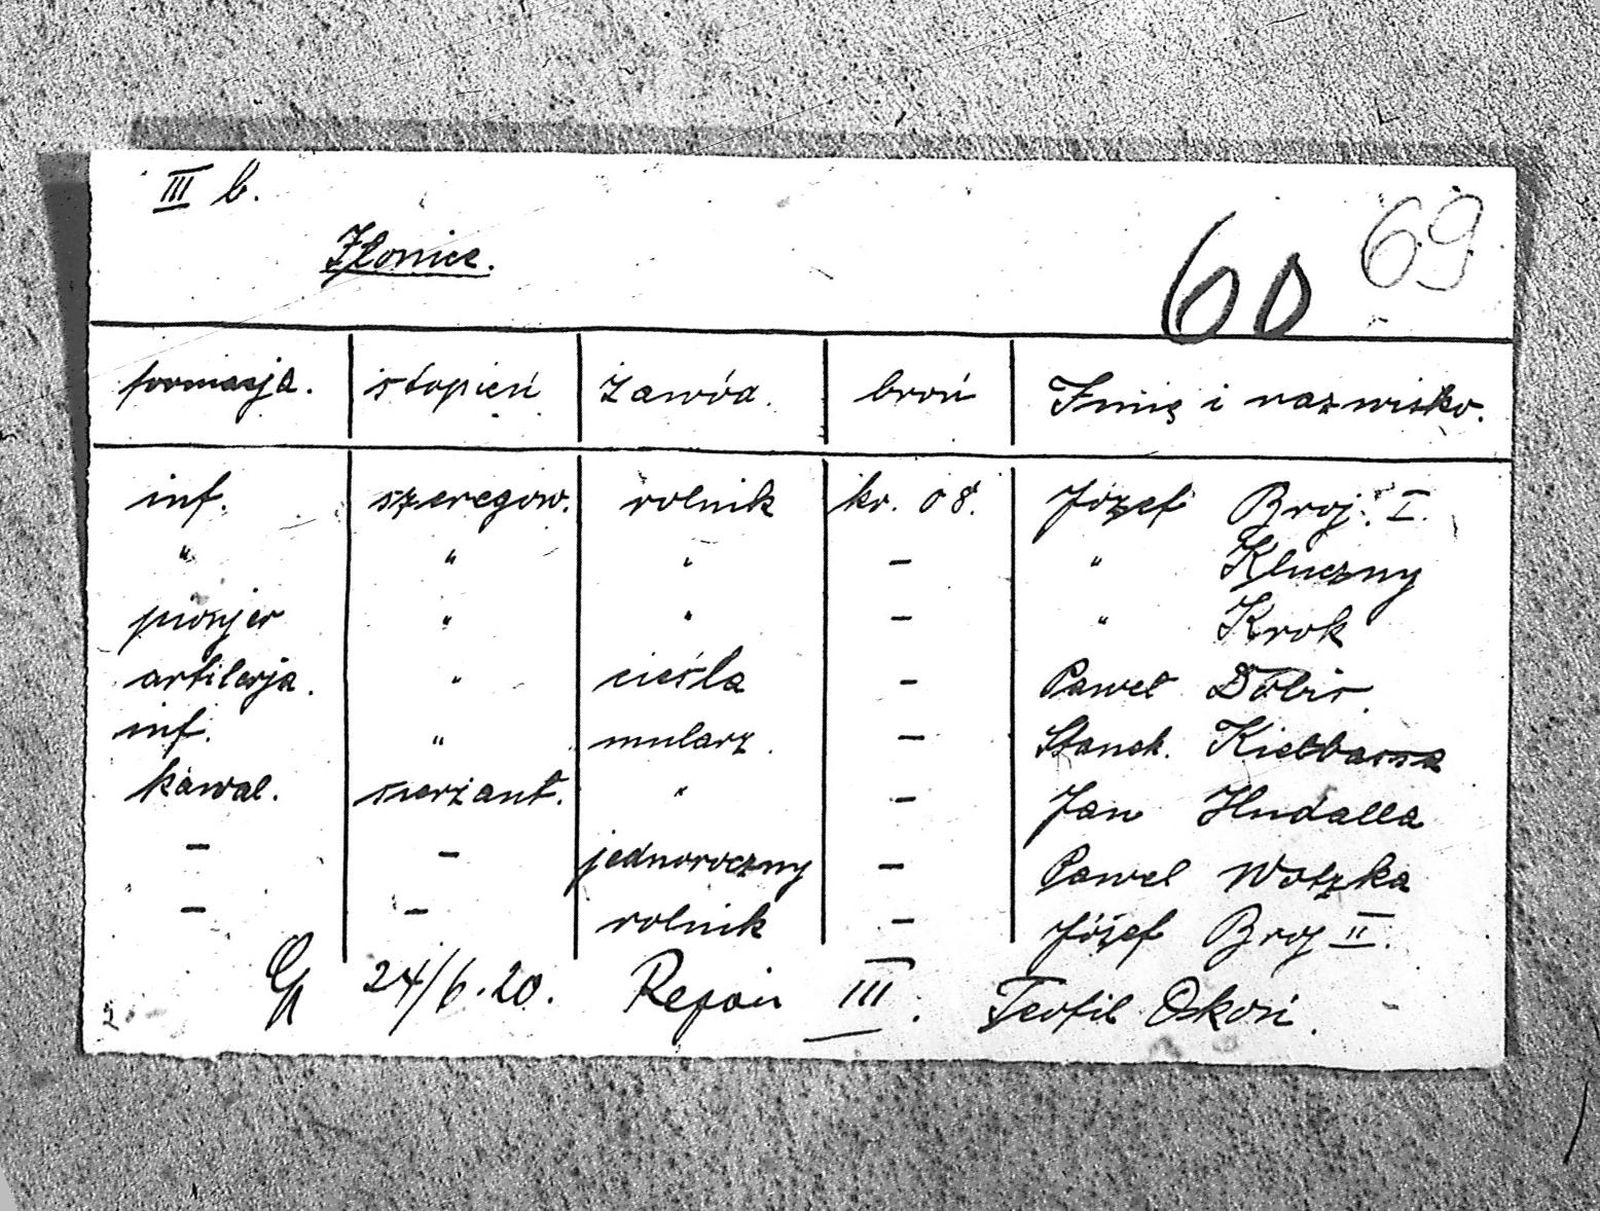 III b.
69
Złonice.
60
formacja. stopień zawód. broń Imię i nazwisko.
inf. szeregow. rolnik kr. 08. Józef Broj. I.
" " " — " Kluczny
pionjer " " — " Krok
artilerja. " cieśla — Paweł Dobis.
inf. " mularz. — Stanek. Kiełbassa
kawal. sierżant. " — Jan Hudalla
— — jednoroczny — Pawel Wotzka
— — rolnik — Józef Broj II.
24/6.20. III. Teofil Oskoń.